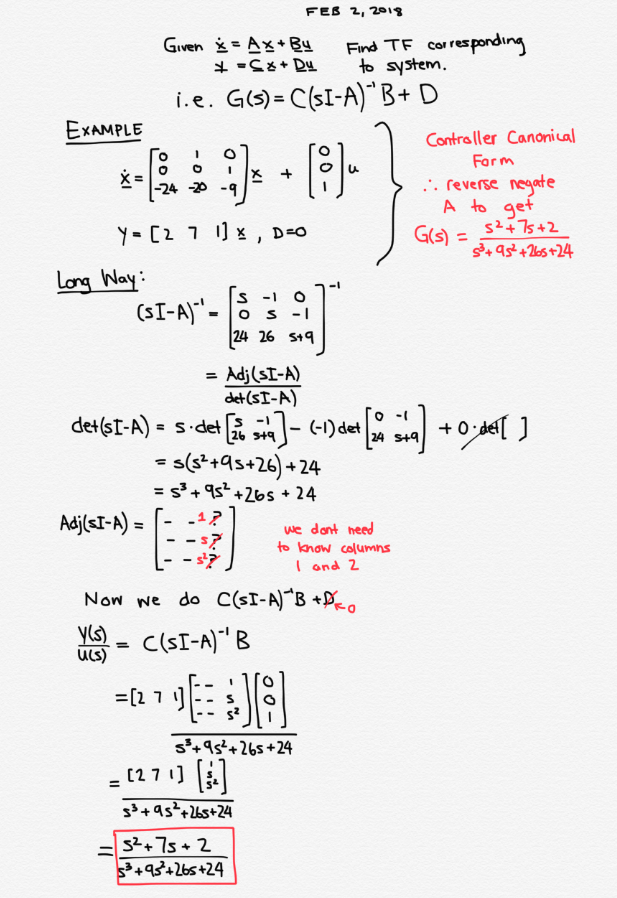 FEB 2, 2018
Given ẋ = Ax + Bu Find TF corresponding
y = Cx + Du to system.
i.e. G(s) = C(sI-A)⁻¹B + D
EXAMPLE
ẋ = [0 1 0; 0 0 1; -24 -20 -9] x + [0; 0; 1] u
Y = [2 7 1] x, D=0
Controller Canonical
Form
∴ reverse negate
A to get
G(s) = (s²+7s+2)/(s³+9s²+26s+24)
Long Way:
(sI-A)⁻¹ = [s -1 0; 0 s -1; 24 26 s+9]⁻¹
= Adj(sI-A)/det(sI-A)
det(sI-A) = s·det[s -1; 26 s+9] - (-1)det[0 -1; 24 s+9] + 0·det[ ]
= s(s²+9s+26)+24
= s³+9s²+26s+24
Adj(sI-A) = [- - 1 ?; - - s ?; - - s² ?]
we dont need
to know columns
1 and 2
Now we do C(sI-A)⁻¹B + D ← 0
Y(s)/U(s) = C(sI-A)⁻¹B
= [2 7 1][- - 1; - - s; - - s²][0; 0; 1] / (s³+9s²+26s+24)
= [2 7 1][1; s; s²] / (s³+9s²+26s+24)
= (s²+7s+2)/(s³+9s²+26s+24)